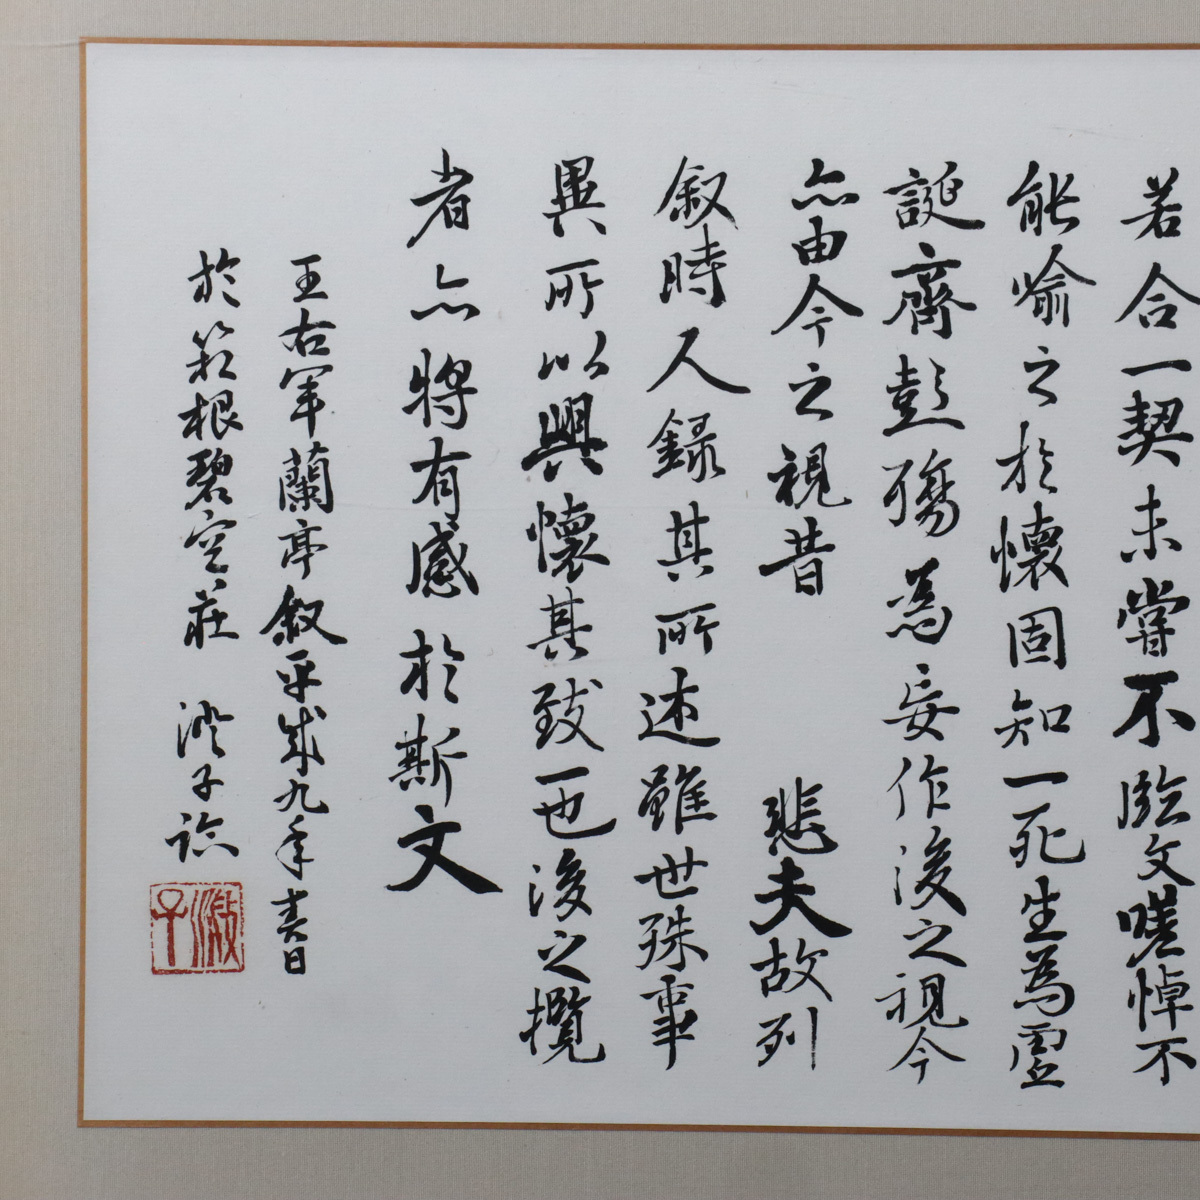 若合一契未嘗不臨文嗟悼不
能喻之於懷固知一死生為虛
誕齊彭殤為妄作後之視今
亦由今之視昔 悲夫故列
叙時人錄其所述雖世殊事
異所以興懷其致一也後之攬
者亦將有感於斯文
王右軍蘭亭叙平成九年春日
於箱根碧空荘 澄子臨